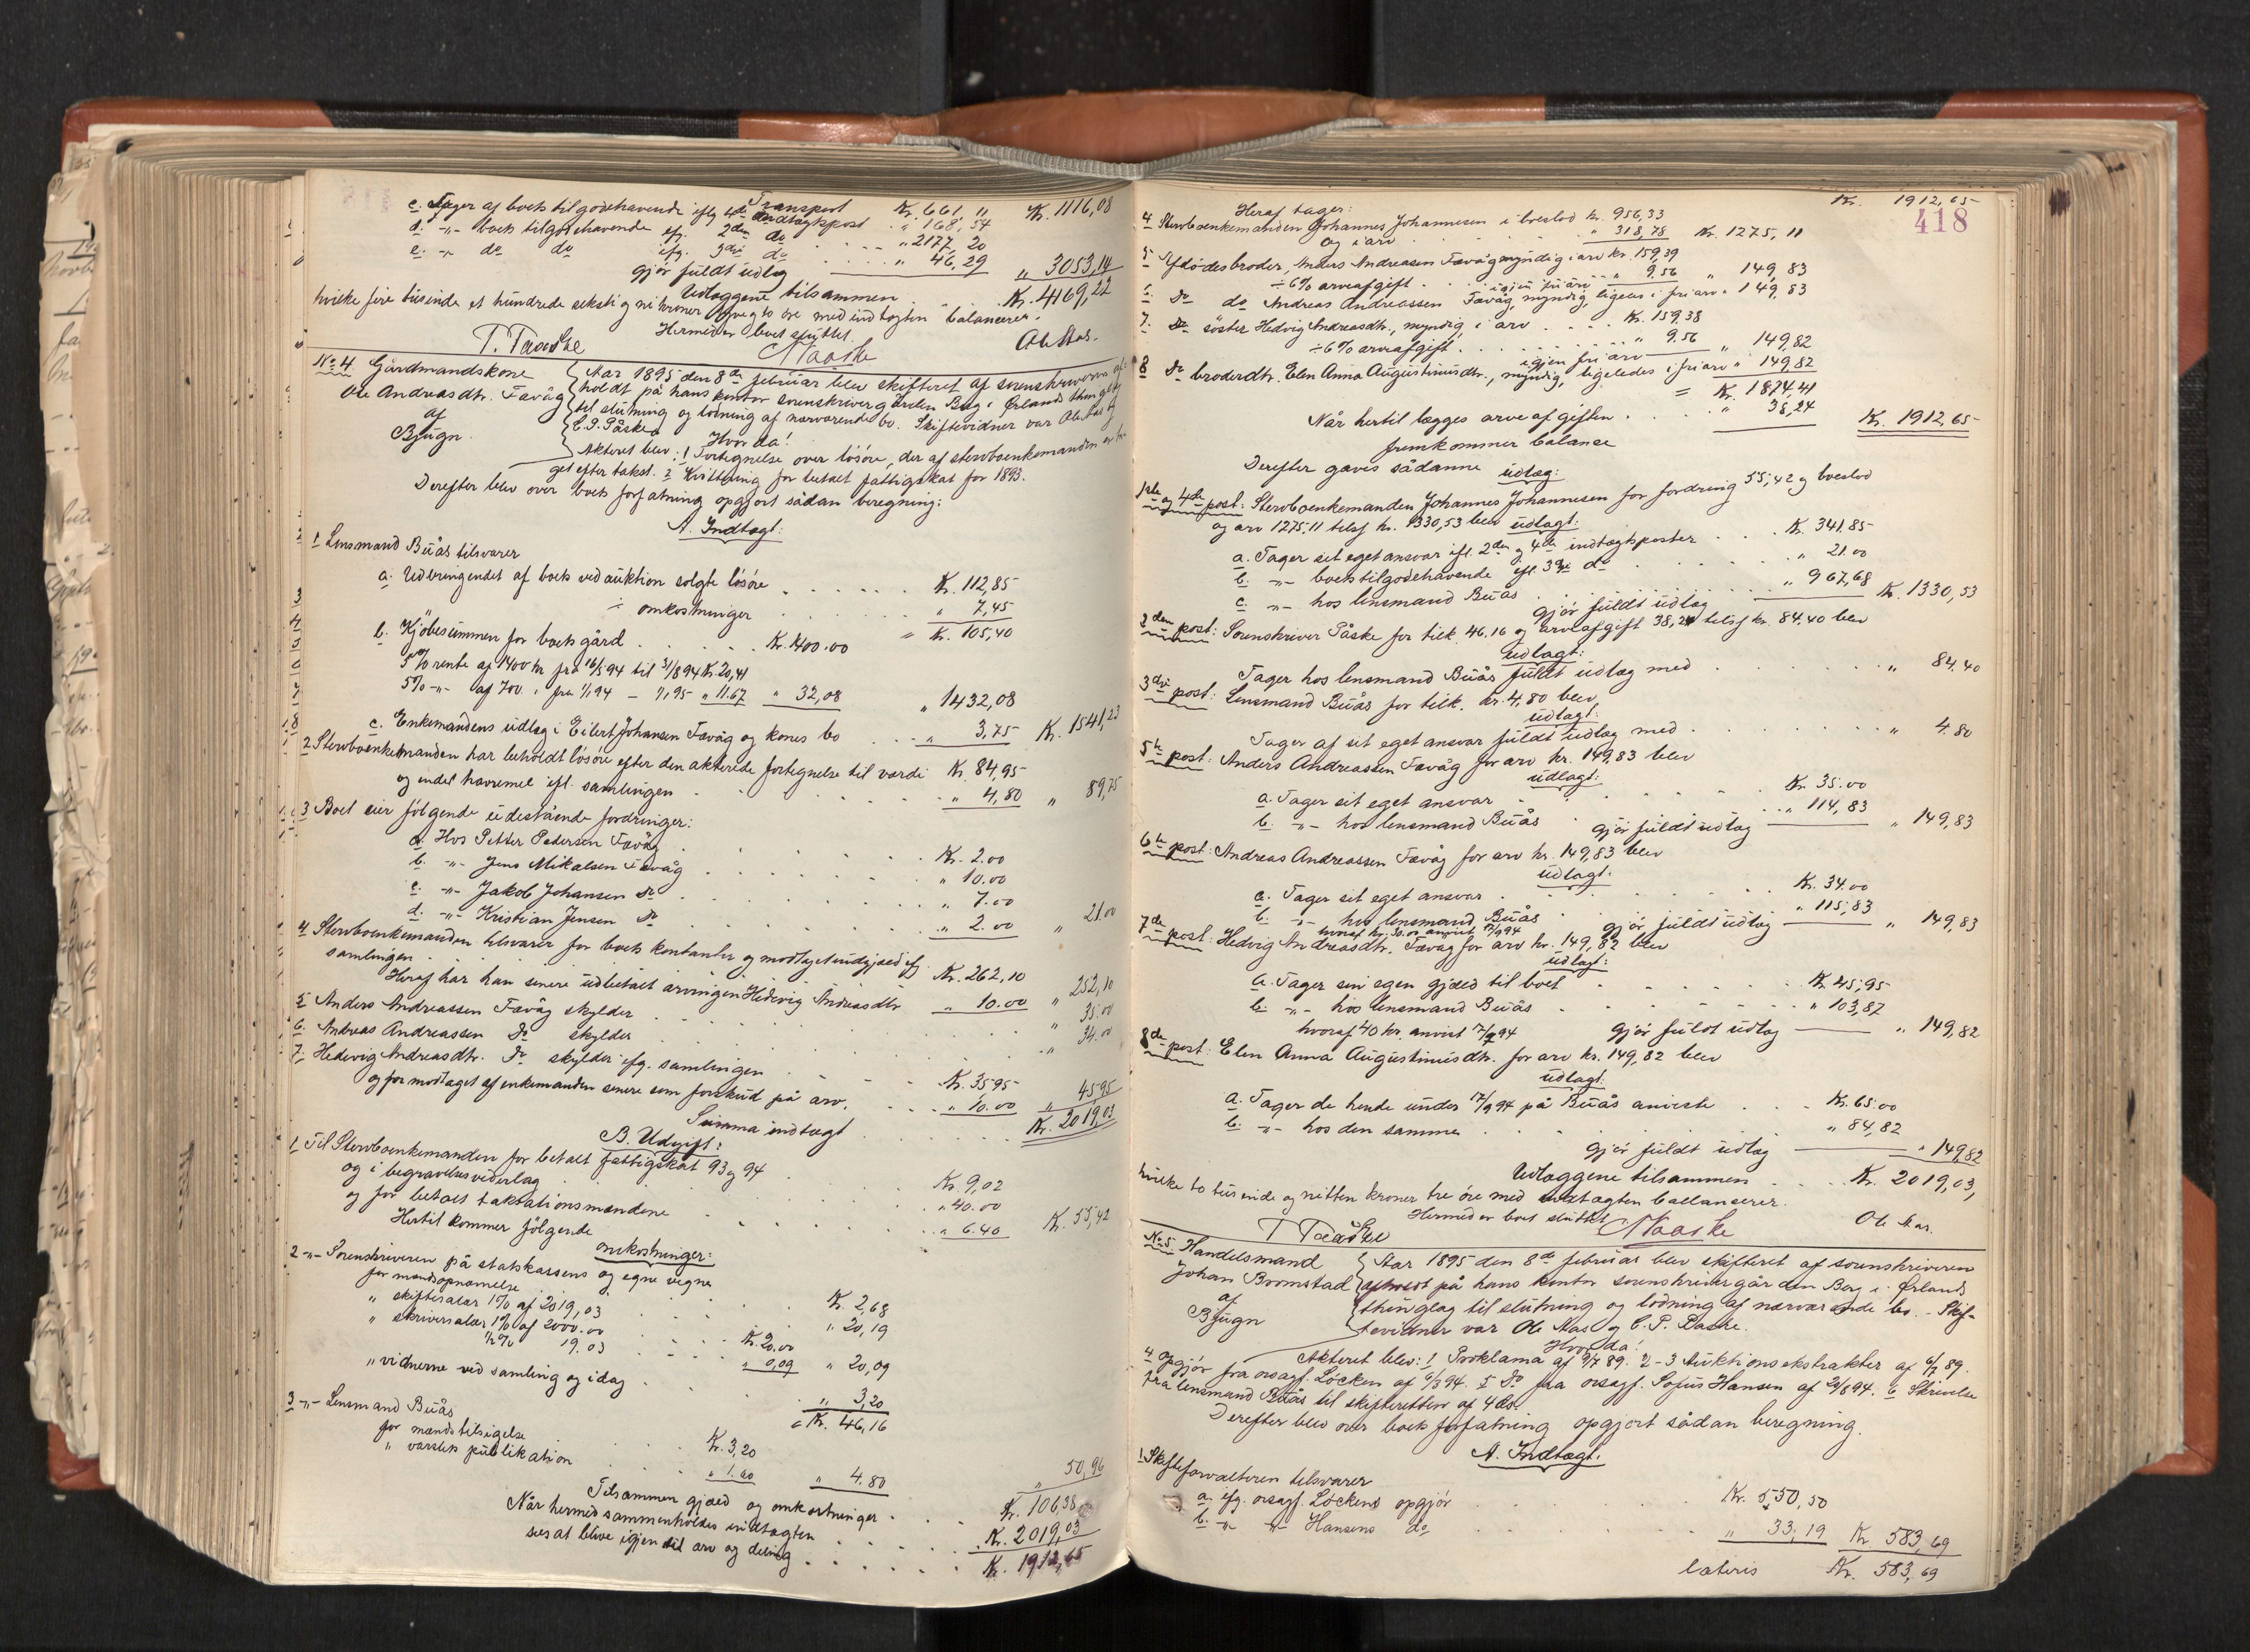 Transport Kr. 661, " Kr. 1116,08
c. Tager af boets tilgodehavende iflg 4de indtægtspost " 168,54
d. -"- boets tilgodehavende ifg. 2den do " 2177,20
e. -"- do do ifg. 3die do " 46,29
gjør fuldt udlæg " 3053,14
Udlæggene tilsammen Kr. 4169,22
hvilke fire tusinde et hundrede seksti og ni kroner tyve og to øre med indtægten balancerer.
Hermed er boet sluttet.
T. Paaske CPaaske Ole Aas.
No 4. Gårdmandskone Aar 1895 den 8de februar blev skifteret af sorenskriveren af-
Ole Andreasdtr. Fævåg holdt på hans kontor sorenskrivergården Borg i Ørlands thinglag
af til slutning og lodning af nærværende bo. Skiftevidner var Ole Aas og
Bjugn. C. P. Påske
Hvorda!
Akteret blev: 1 Fortegnelse over løsøre, der af sterboenkemanden er ta-
get efter takst. 2 Kvittering for betalt fattigskat for 1893.
Derefter blev over boets forfatning opgjort sådan beregning:
A. Indtægt:
1 Lensmand Buås tilsvarer
a. Udbringendet af boets ved auktion solgte løsøre Kr. 112,85
÷ omkostninger " 7,45
= Kr. 105,40
b. Kjøbesummen for boets gård Kr. 1400.00
5% rente af 1400 kr fra 16/5 94 til 31/8 94 Kr. 20,41
5% -"- af 700 " fra 1/9 94 - 1/1 95 " 11.67 " 32,08 " 1432,08
c. Enkemandens udlæg i Eilert Johansen Fævåg og kones bo " 3,75 Kr. 1541,23
2 Sterboenkemanden har beholdt løsøre efter den akterede fortegnelse til værdi Kr. 84,95
og endel havremel ifl. samlingen " 4,80 " 89,75
3 Boet eier følgende udestående fordringer:
a. Hos Petter Pedersen Fævåg Kr. 2.00
b. -"- Jens Mikalsen Fævåg " 10.00
c. -"- Jakob Johansen do " 7.00
d. -"- Kristian Jensen do " 2.00 " 21.00
4 Sterboenkemanden tilsvarer for boets kontanter og modtaget udgjæld ifg.
samlingen Kr. 262,10
Heraf har han senere udbetalt arvingen Hedevig Andreasdtr " 10.00 " 252,10
5 Anders Andreassen Fævåg skylder " 35.00
6. Andreas Andreassen do skylder " 34.00
7. Hedevig Andreasdtr. do skylder ifg. samlingen Kr. 35.95
og for modtaget af enkemanden senere som forskud på arv. " 10.00 " 45.95
Summa indtægt Kr. 2019,03
B. Udgift:
1 Til Sterboenkemanden for betalt fattigskat 93 og 94 Kr. 9,02
og i begravelsesvederlag " 40.00
og for betalt taksationsmændene " 6.40 Kr. 55,42
Hertil kommer følgende
omkostninger:
2 -"- Sorenskriveren på statskassens og egne vegne
for mandsopnævnelse Kr. 2,68
" skiftesalær 1% af 2019,03 " 20,19
" skriversalær 1% af 2000.00 Kr. 20.00
1/2% 19.03 " 0,09 " 20,09
" vidnerne ved samling og idag " 3,20
= Kr. 46,16
3 -"- Lensmand Buås
for mandstilsigelse Kr. 3,20
" varslets publikation " 1.60 " 4.80 " 50,96
Tilsammen gjæld og omkostninger Kr. 106,38
Når hermed sammenholdes indtægten Kr. 2019,03
sees at blive igjen til arv og deling Kr. 1912,65
Kr. 1912,65
418
Heraf tager:
4 Sterboenkemanden Johannes Johannesen i boeslod kr. 956,33
og i arv " 318,78 Kr. 1275,11
5 Afdødes broder, Anders Andreasen Fævåg myndig i arv kr. 159,39
÷ 6% arveafgift " 9.56 igjen fri arv " 149,83
6. do do Andreas Andreassen Fævåg, myndig, ligeens i fri arv " 149,83
7. do søster Hedvig Andreasdtr., myndig, i arv Kr. 159.38
÷ 6% arveafgift " 9.56 igjen fri arv " 149,82
8 do broderdtr. Elen Anna Augustinusdtr., myndig, ligeledes i fri arv " 149,82
= Kr. 1874,41
Når hertil lægges arveafgiften " 38,24 Kr. 1912,65
fremkommer balance
Derefter gaves sådanne udlæg:
1ste og 4de post: Sterboenkemanden Johannes Johannesen for fordring 55,42 og boeslod
og arv 1275.11 tils. kr. 1330,53 blev udlagt:
a. Tager sit eget ansvar ifl. 2den og 4de indtægtsposter Kr. 341.85
b. -"- boets tilgodehavende ifl. 3die do " 21.00
c. -"- hos lensmand Buås " 967,68
gjør fuldt udlæg Kr. 1330,53
2den post: Sorenskriver Påske for tilk. 46.16 og arveafgift 38,24 tils. kr. 84.40 blev
udlagt:
Tager hos lensmand Buås fuldt udlæg med " 84.40
3die post: Lensmand Buås for tilk. kr. 4,80 blev
udlagt:
Tager af sit eget ansvar fuldt udlæg med " 4.80
5te post: Anders Andreassen Fævåg for arv kr. 149,83 blev
udlagt:
a. Tager sit eget ansvar Kr. 35.00
b. -"- hos lensmand Buås " 114,83
gjør fuldt udlæg " 149,83
6te post: Andreas Andreassen Fævåg for arv kr. 149,83 blev
udlagt:
a. Tager sit eget ansvar Kr. 34.00
b. -"- hos lensmand Buås " 115,83
hvoraf kr. 30.00 anvist 17/9 94 gjør fuldt udlæg " 149,83
7de post: Hedvig Andreasdtr. Fævåg for arv kr. 149,82 blev
udlagt:
a. Tager sin egen gjæld til boet Kr. 45,95
b. -"- hos lensmand Buås " 103,87
hvoraf 40 kr. anvist 17/9 94 gjør fuldt udlæg " 149,82
8de post: Elen Anna Augustinusdtr. for arv kr. 149,82 blev
udlagt:
a. Tager de hende under 17/9 94 på Buås anviste Kr. 65.00
b. -"- hos den samme " 84,82
gjør fuldt udlæg " 149,82
Udlæggene tilsammen Kr. 2019,03,
hvilke to tusinde og nitten kroner tre øre med indtægten ballancerer.
Hermed er boet sluttet
T Paaske CPaaske Ole Aas.
No 5 Handelsmand Aar 1895 den 8de februar blev skifteret af sorenskriveren
Johan Bromstad afholdt på hans kontor sorenskrivergården Borg i Ørlands
af thinglag til slutning og lodning af nærværende bo. - Skif-
Bjugn tevidner var Ole Aas og C. P. Paaske.
Hvorda!
Akteret blev: 1 Proklama af 9/7 89. 2-3 Auktionsekstrakter af 6/7 89.
4 opgjør fra orsagf. Løcken af 6/3 94. 5 do fra orsagf. Sofus Hansen af 24/8 94. 6 Skrivelse
fra lensmand Buås til skifteretten af 4 ds.
Derefter blev over boets forfatning opgjort sådan beregning.
A. Indtægt.
1 Skifteforvalteren tilsvarer
a. ifg. orsagf. Løckens opgjør Kr. 550,50
b. -"- -"- Hansens do " 33,19 Kr. 583,69
lateris Kr. 583,69